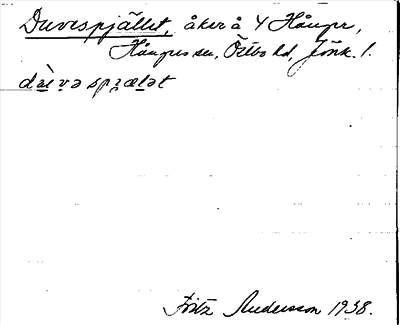 Duvespjället, åker å Y Hånger,
Hångers sn, Östbo hd, Jönk. l.
dàːvə spɹ̥æḷət
Fritz Andersson 1938.